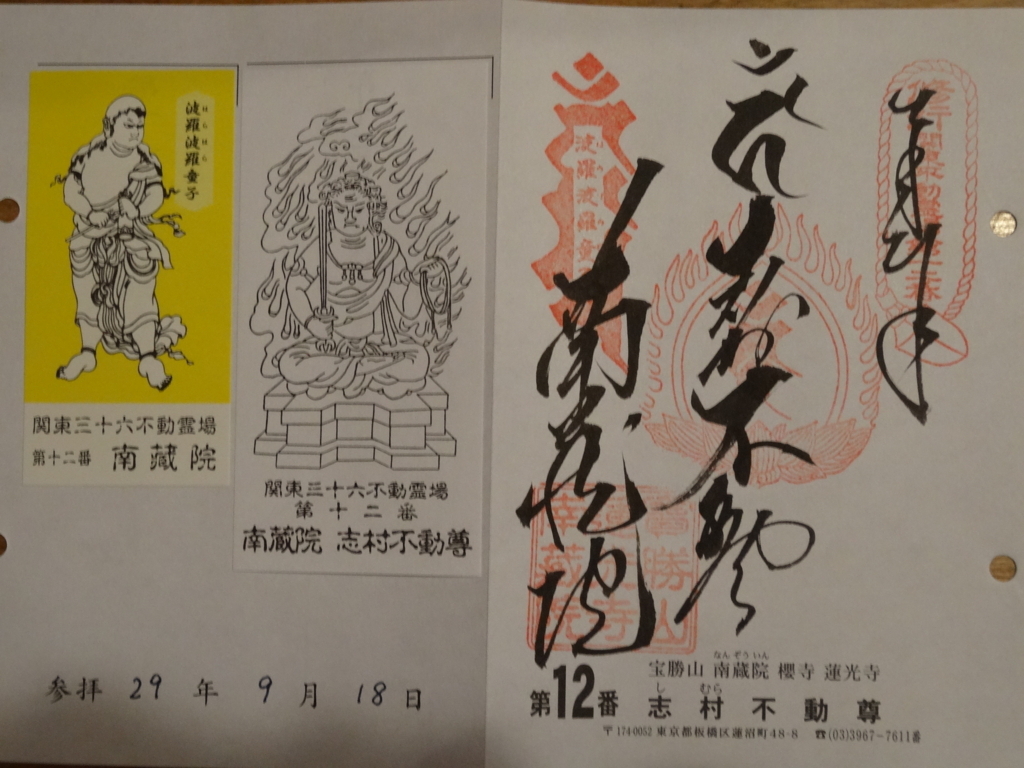 波羅波羅童子
はらはら
関東三十六不動霊場
第十二番 南藏院
関東三十六不動霊場
第十二番
南蔵院 志村不動尊
参拝 29年 9月 18日
波羅波羅童子
南蔵院
宝勝山
南蔵院
なんぞういん
宝勝山 南蔵院 櫻寺 蓮光寺
しむら
第12番 志村不動尊
〒174-0052 東京都板橋区蓮沼町48-8 ☎(03)3967-7611番